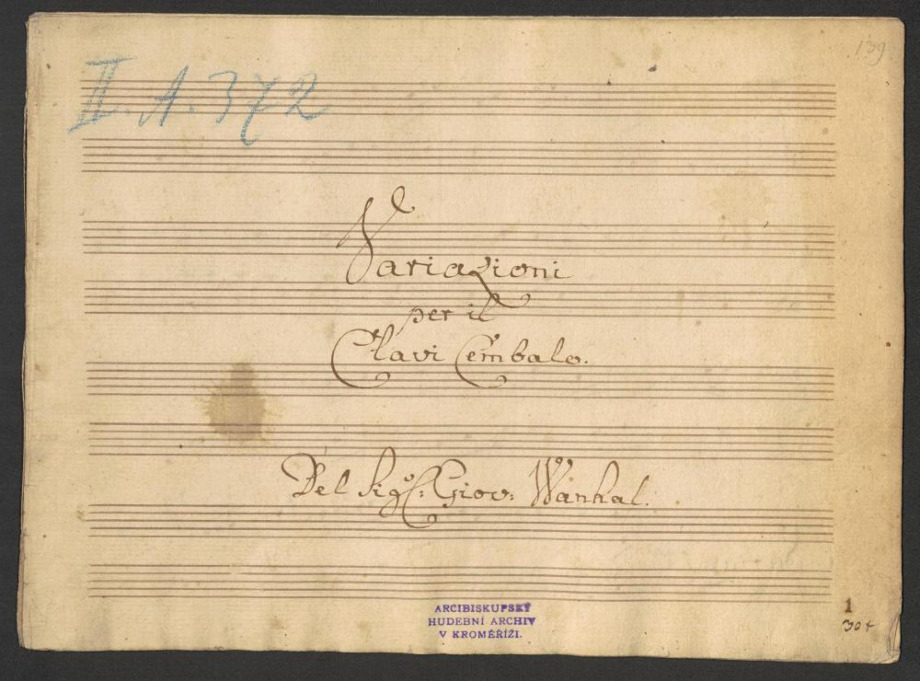 139
II. A. 372
Variazioni
per il
Clavi Cembalo.
Del Sig.r: Giov: Wanhal.
ARCIBISKUPSKÝ
HUDEBNÍ ARCHIV
V KROMĚŘÍŽI.
1